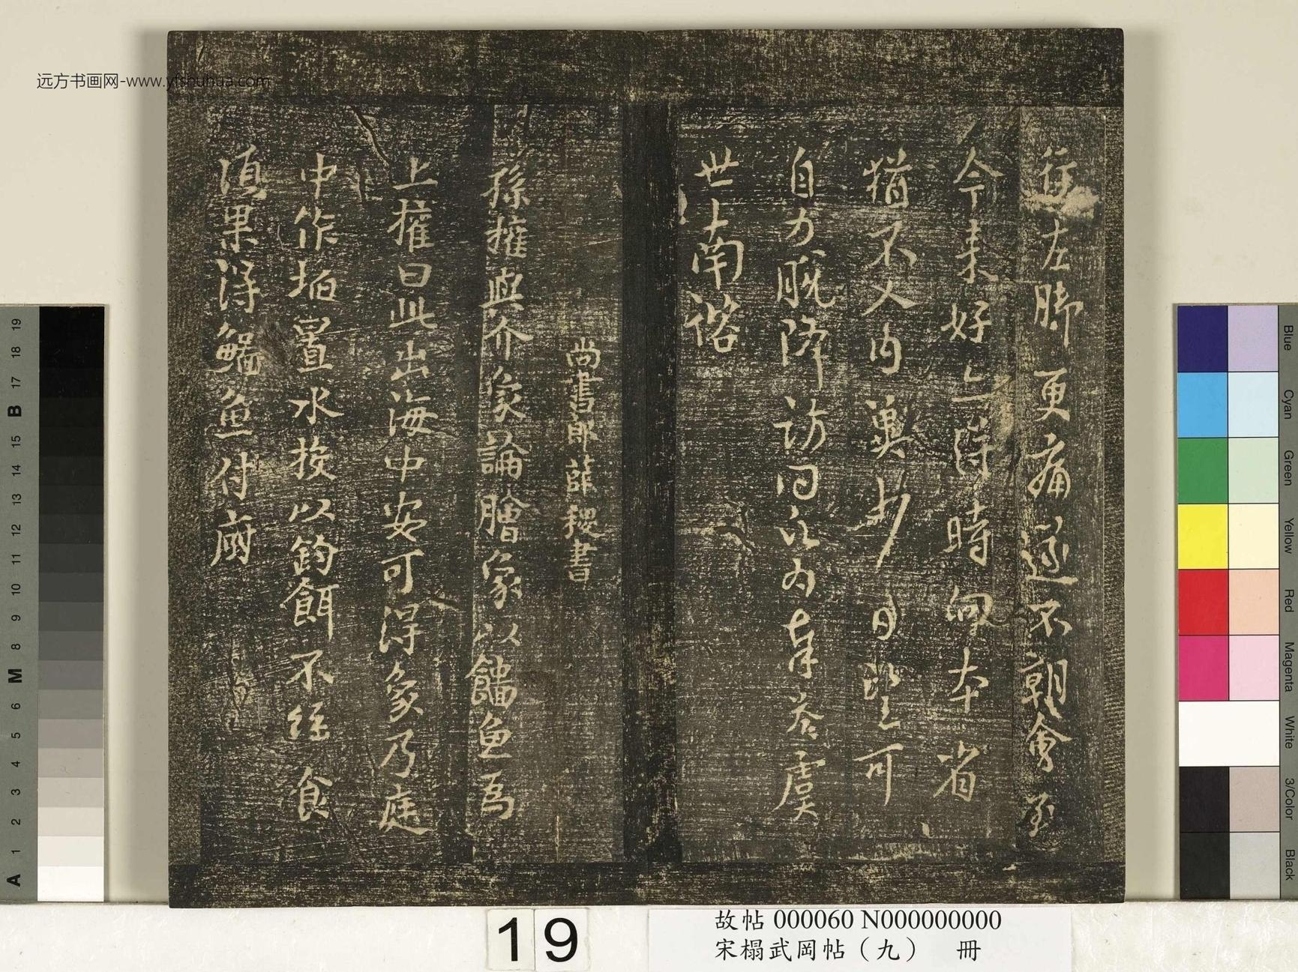 远方书画网-www.yfshuhua.com
行左脚更痛遂不朝會至
今未好亦得時向本省
猶不入内冀少日望可
自力脱降訪问願为奉答虞
世南諮
尚書郎薛稷書
孫權與介象論膾象以鯔魚爲
上權曰此出海中安可得象乃庭
中作埳置水投以釣餌不經食
頃果得鯔魚付廚
19
故帖 000060 N000000000
宋榻武岡帖（九） 冊
19
18
17
B
15
14
13
12
11
10
9
8
M
6
5
4
3
2
1
A
Blue
Cyan
Green
Yellow
Red
Magenta
White
3/Color
Black